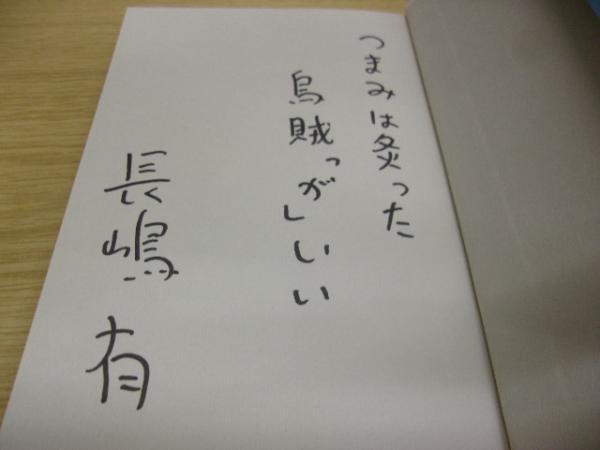 つまみは炙った
烏賊「が」いい
長嶋有